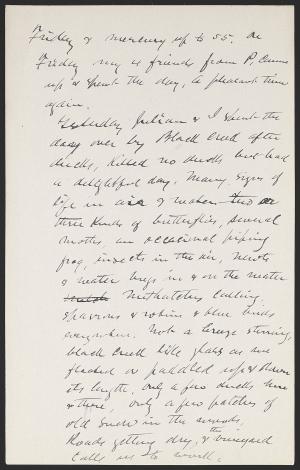 Friday & mercury up to 55. On
Friday my friend from P. came
up & spent the day, a pleasant time
again.
Yesterday Julian & I spent the
day over by Black Creek after
ducks, killed no ducks but had
a delightful day. Many signs of
life in air & water two or
three kinds of butterflies, several
moths, an occasional piping
frog, insects in the air, newts
& water bugs in & on the water
Nuthatches calling,
sparrows & robins & blue birds
everywhere. Not a breeze stirring,
black creek like glass as we
floated or paddled up & down
its length, only a few ducks here
& there, only a few patches of
old snow in the woods.
Roads getting dry, & the vineyard
calls us to work.